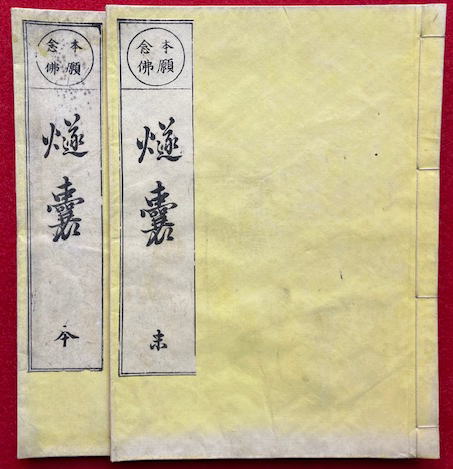 本願
念佛
燧囊
本
本願
念佛
燧囊
末